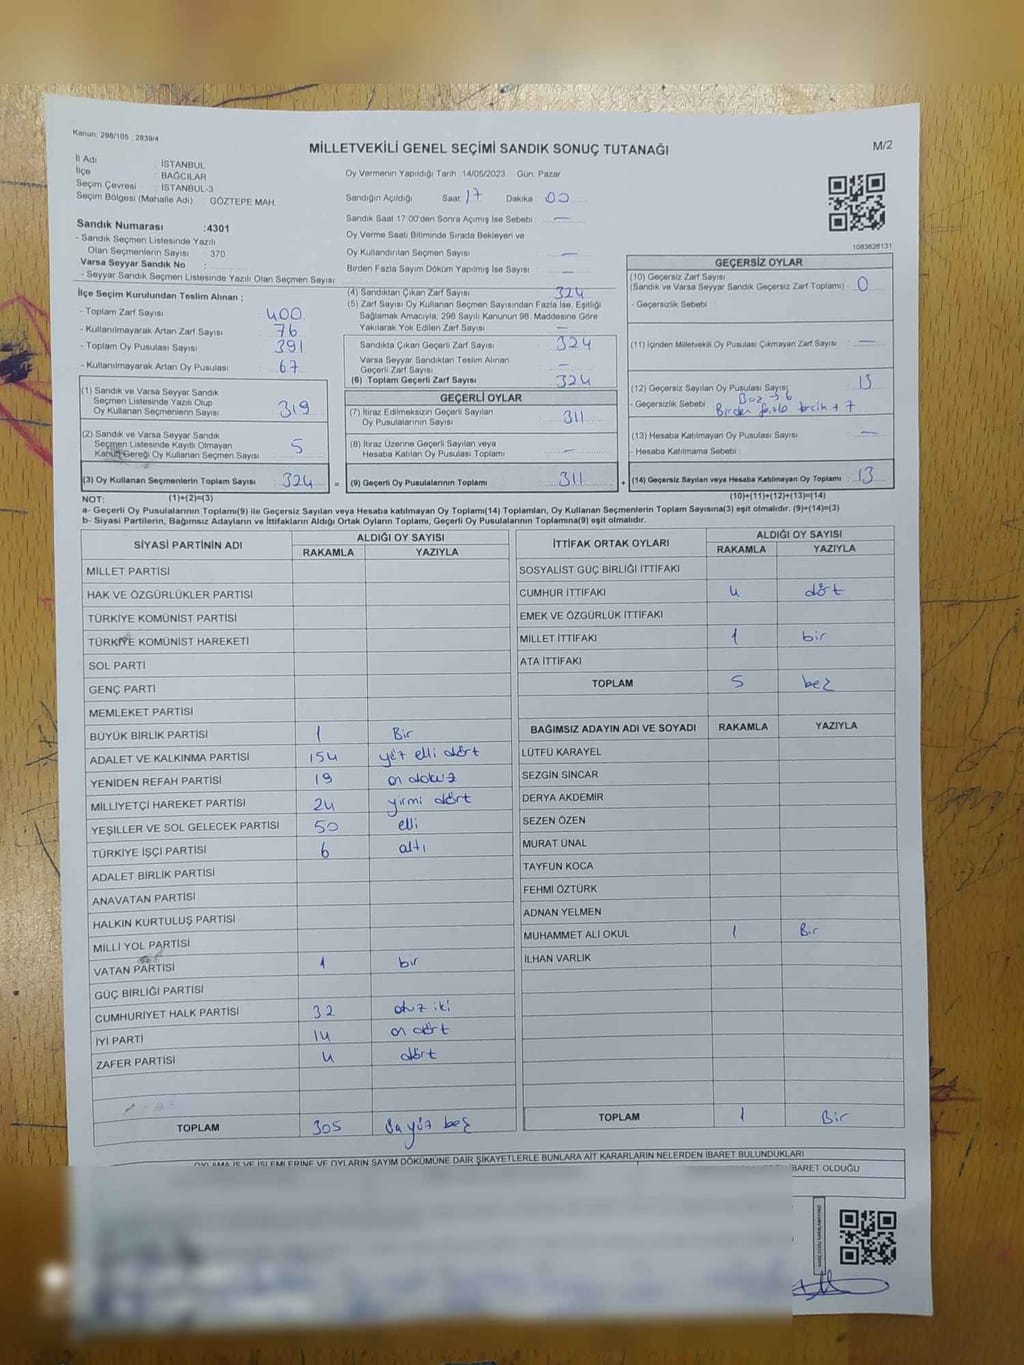 Kanun: 298/105 , 2839/4
MİLLETVEKİLİ GENEL SEÇİMİ SANDIK SONUÇ TUTANAĞI
M/2
İl Adı : İSTANBUL
İlçe : BAĞCILAR
Seçim Çevresi : İSTANBUL-3
Seçim Bölgesi (Mahalle Adı) : GÖZTEPE MAH.
Oy Vermenin Yapıldığı Tarih : 14/05/2023 Gün: Pazar
Sandığın Açıldığı Saat : 17 Dakika : 00
Sandık Saat 17:00'den Sonra Açımış İse Sebebi : —
Oy Verme Saati Bitiminde Sırada Bekleyen ve
Oy Kullandırılan Seçmen Sayısı : —
Birden Fazla Sayım Döküm Yapılmış İse Sayısı : —
1083626131
Sandık Numarası :4301
- Sandık Seçmen Listesinde Yazılı
Olan Seçmenlerin Sayısı : 370
Varsa Seyyar Sandık No :
- Seyyar Sandık Seçmen Listesinde Yazılı Olan Seçmen Sayısı:
İlçe Seçim Kurulundan Teslim Alınan ;
- Toplam Zarf Sayısı : 400
- Kullanılmayarak Artan Zarf Sayısı : 76
- Toplam Oy Pusulası Sayısı : 391
- Kullanılmayarak Artan Oy Pusulası : 67
(1) Sandık ve Varsa Seyyar Sandık
Seçmen Listesinde Yazılı Olup
Oy Kullanan Seçmenlerin Sayısı : 319
(2) Sandık ve Varsa Seyyar Sandık
Seçmen Listesinde Kayıtlı Olmayan
Kanun Gereği Oy Kullanan Seçmen Sayısı : 5
(3) Oy Kullanan Seçmenlerin Toplam Sayısı : 324 =
(4) Sandıktan Çıkan Zarf Sayısı : 324
(5) Zarf Sayısı Oy Kullanan Seçmen Sayısından Fazla İse, Eşitliği
Sağlamak Amacıyla, 298 Sayılı Kanunun 98. Maddesine Göre
Yakılarak Yok Edilen Zarf Sayısı : —
Sandıkta Çıkan Geçerli Zarf Sayısı : 324
Varsa Seyyar Sandıktan Teslim Alınan
Geçerli Zarf Sayısı : —
(6) Toplam Geçerli Zarf Sayısı : 324
GEÇERLİ OYLAR
(7) İtiraz Edilmeksizin Geçerli Sayılan
Oy Pusulalarının Sayısı : 311
(8) İtiraz Üzerine Geçerli Sayılan veya
Hesaba Katılan Oy Pusulası Toplamı : —
(9) Geçerli Oy Pusulalarının Toplamı : 311 +
GEÇERSİZ OYLAR
(10) Geçersiz Zarf Sayısı
(Sandık ve Varsa Seyyar Sandık Geçersiz Zarf Toplamı) : 0
- Geçersizlik Sebebi :
(11) İçinden Milletvekili Oy Pusulası Çıkmayan Zarf Sayısı : —
(12) Geçersiz Sayılan Oy Pusulası Sayısı : 13
- Geçersizlik Sebebi : Boş → 6
Birden fazla tercih → 7
(13) Hesaba Katılmayan Oy Pusulası Sayısı : —
- Hesaba Katılmama Sebebi :
(14) Geçersiz Sayılan veya Hesaba Katılmayan Oy Toplamı : 13
NOT: (1)+(2)=(3) (10)+(11)+(12)+(13)=(14)
a- Geçerli Oy Pusulalarının Toplamı(9) ile Geçersiz Sayılan veya Hesaba katılmayan Oy Toplamı(14) Toplamları, Oy Kullanan Seçmenlerin Toplam Sayısına(3) eşit olmalıdır. (9)+(14)=(3)
b- Siyasi Partilerin, Bağımsız Adayların ve İttifakların Aldığı Ortak Oyların Toplamı, Geçerli Oy Pusulalarının Toplamına(9) eşit olmalıdır.
SİYASİ PARTİNİN ADI ALDIĞI OY SAYISI
RAKAMLA YAZIYLA
MİLLET PARTİSİ
HAK VE ÖZGÜRLÜKLER PARTİSİ
TÜRKİYE KOMÜNİST PARTİSİ
TÜRKİYE KOMÜNİST HAREKETİ
SOL PARTİ
GENÇ PARTİ
MEMLEKET PARTİSİ
BÜYÜK BİRLİK PARTİSİ 1 Bir
ADALET VE KALKINMA PARTİSİ 154 yüz elli dört
YENİDEN REFAH PARTİSİ 19 on dokuz
MİLLİYETÇİ HAREKET PARTİSİ 24 yirmi dört
YEŞİLLER VE SOL GELECEK PARTİSİ 50 elli
TÜRKİYE İŞÇİ PARTİSİ 6 altı
ADALET BİRLİK PARTİSİ
ANAVATAN PARTİSİ
HALKIN KURTULUŞ PARTİSİ
MİLLİ YOL PARTİSİ
VATAN PARTİSİ 1 bir
GÜÇ BİRLİĞİ PARTİSİ
CUMHURİYET HALK PARTİSİ 32 otuz iki
İYİ PARTİ 14 on dört
ZAFER PARTİSİ 4 dört
TOPLAM 305 üç yüz beş
İTTİFAK ORTAK OYLARI ALDIĞI OY SAYISI
RAKAMLA YAZIYLA
SOSYALİST GÜÇ BİRLİĞİ İTTİFAKI
CUMHUR İTTİFAKI 4 dört
EMEK VE ÖZGÜRLÜK İTTİFAKI
MİLLET İTTİFAKI 1 bir
ATA İTTİFAKI
TOPLAM 5 beş
BAĞIMSIZ ADAYIN ADI VE SOYADI RAKAMLA YAZIYLA
LÜTFÜ KARAYEL
SEZGİN SİNCAR
DERYA AKDEMİR
SEZEN ÖZEN
MURAT ÜNAL
TAYFUN KOCA
FEHMİ ÖZTÜRK
ADNAN YELMEN
MUHAMMET ALİ OKUL 1 Bir
İLHAN VARLIK
TOPLAM 1 Bir
OYLAMA İŞ VE İŞLEMLERİNE VE OYLARIN SAYIM DÖKÜMÜNE DAİR ŞİKAYETLERLE BUNLARA AİT KARARLARIN NELERDEN İBARET BULUNDUKLARI
İBARET OLDUĞU